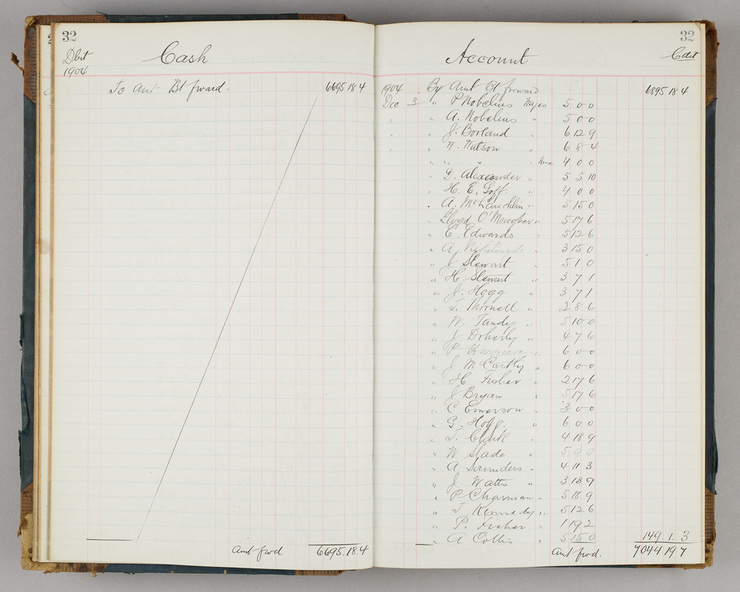 32
Cash
Debit
1904
To Amt Bt fward. 6695 18 4
Amt fwd 6695. 18. 4
32
Account
Credit
1904 By Amt Bt forward 6895 18 4
Dec 3 " P Nobelius Wages 5 0 0
" A. Nobelius " 5 0 0
" J. Borland " 6 12 9
" W. Watson " 6 8 4
" " " 4 0 0
" G. Alexander " 5 5 10
" H. E. Goff " 4 0 0
" A. McLauchlin " 5 15 0
Lloyd O'Meagher " 5 17 6
" E. Edwards " 5 12 6
" A. " 3 15 0
" J Stewart " 5 1 0
" H Stewart " 3 7 1
" J. Hogg " 3 7 1
" " 2 8 6
" W. Tandy " 5 10 0
" J Doherty " 4 7 6
" P. " 6 0 0
" J McCarthy " 6 0 0
" H Fisher " 2 17 6
" J Bryan " 5 17 6
" C Emerson " 3 0 0
" G. Hogg " 6 0 0
" Clark " 4 18 9
" W Slade " 5 9 0
" A Saunders " 4 11 3
" J. Watts " 3 18 9
" P Chapman " 5 18 9
" Kennedy " 5 12 6
" P. Fisher " 1 19 2
" A Collis " 5 15 0 149. 1. 3
Amt fwd. 7044 19 7